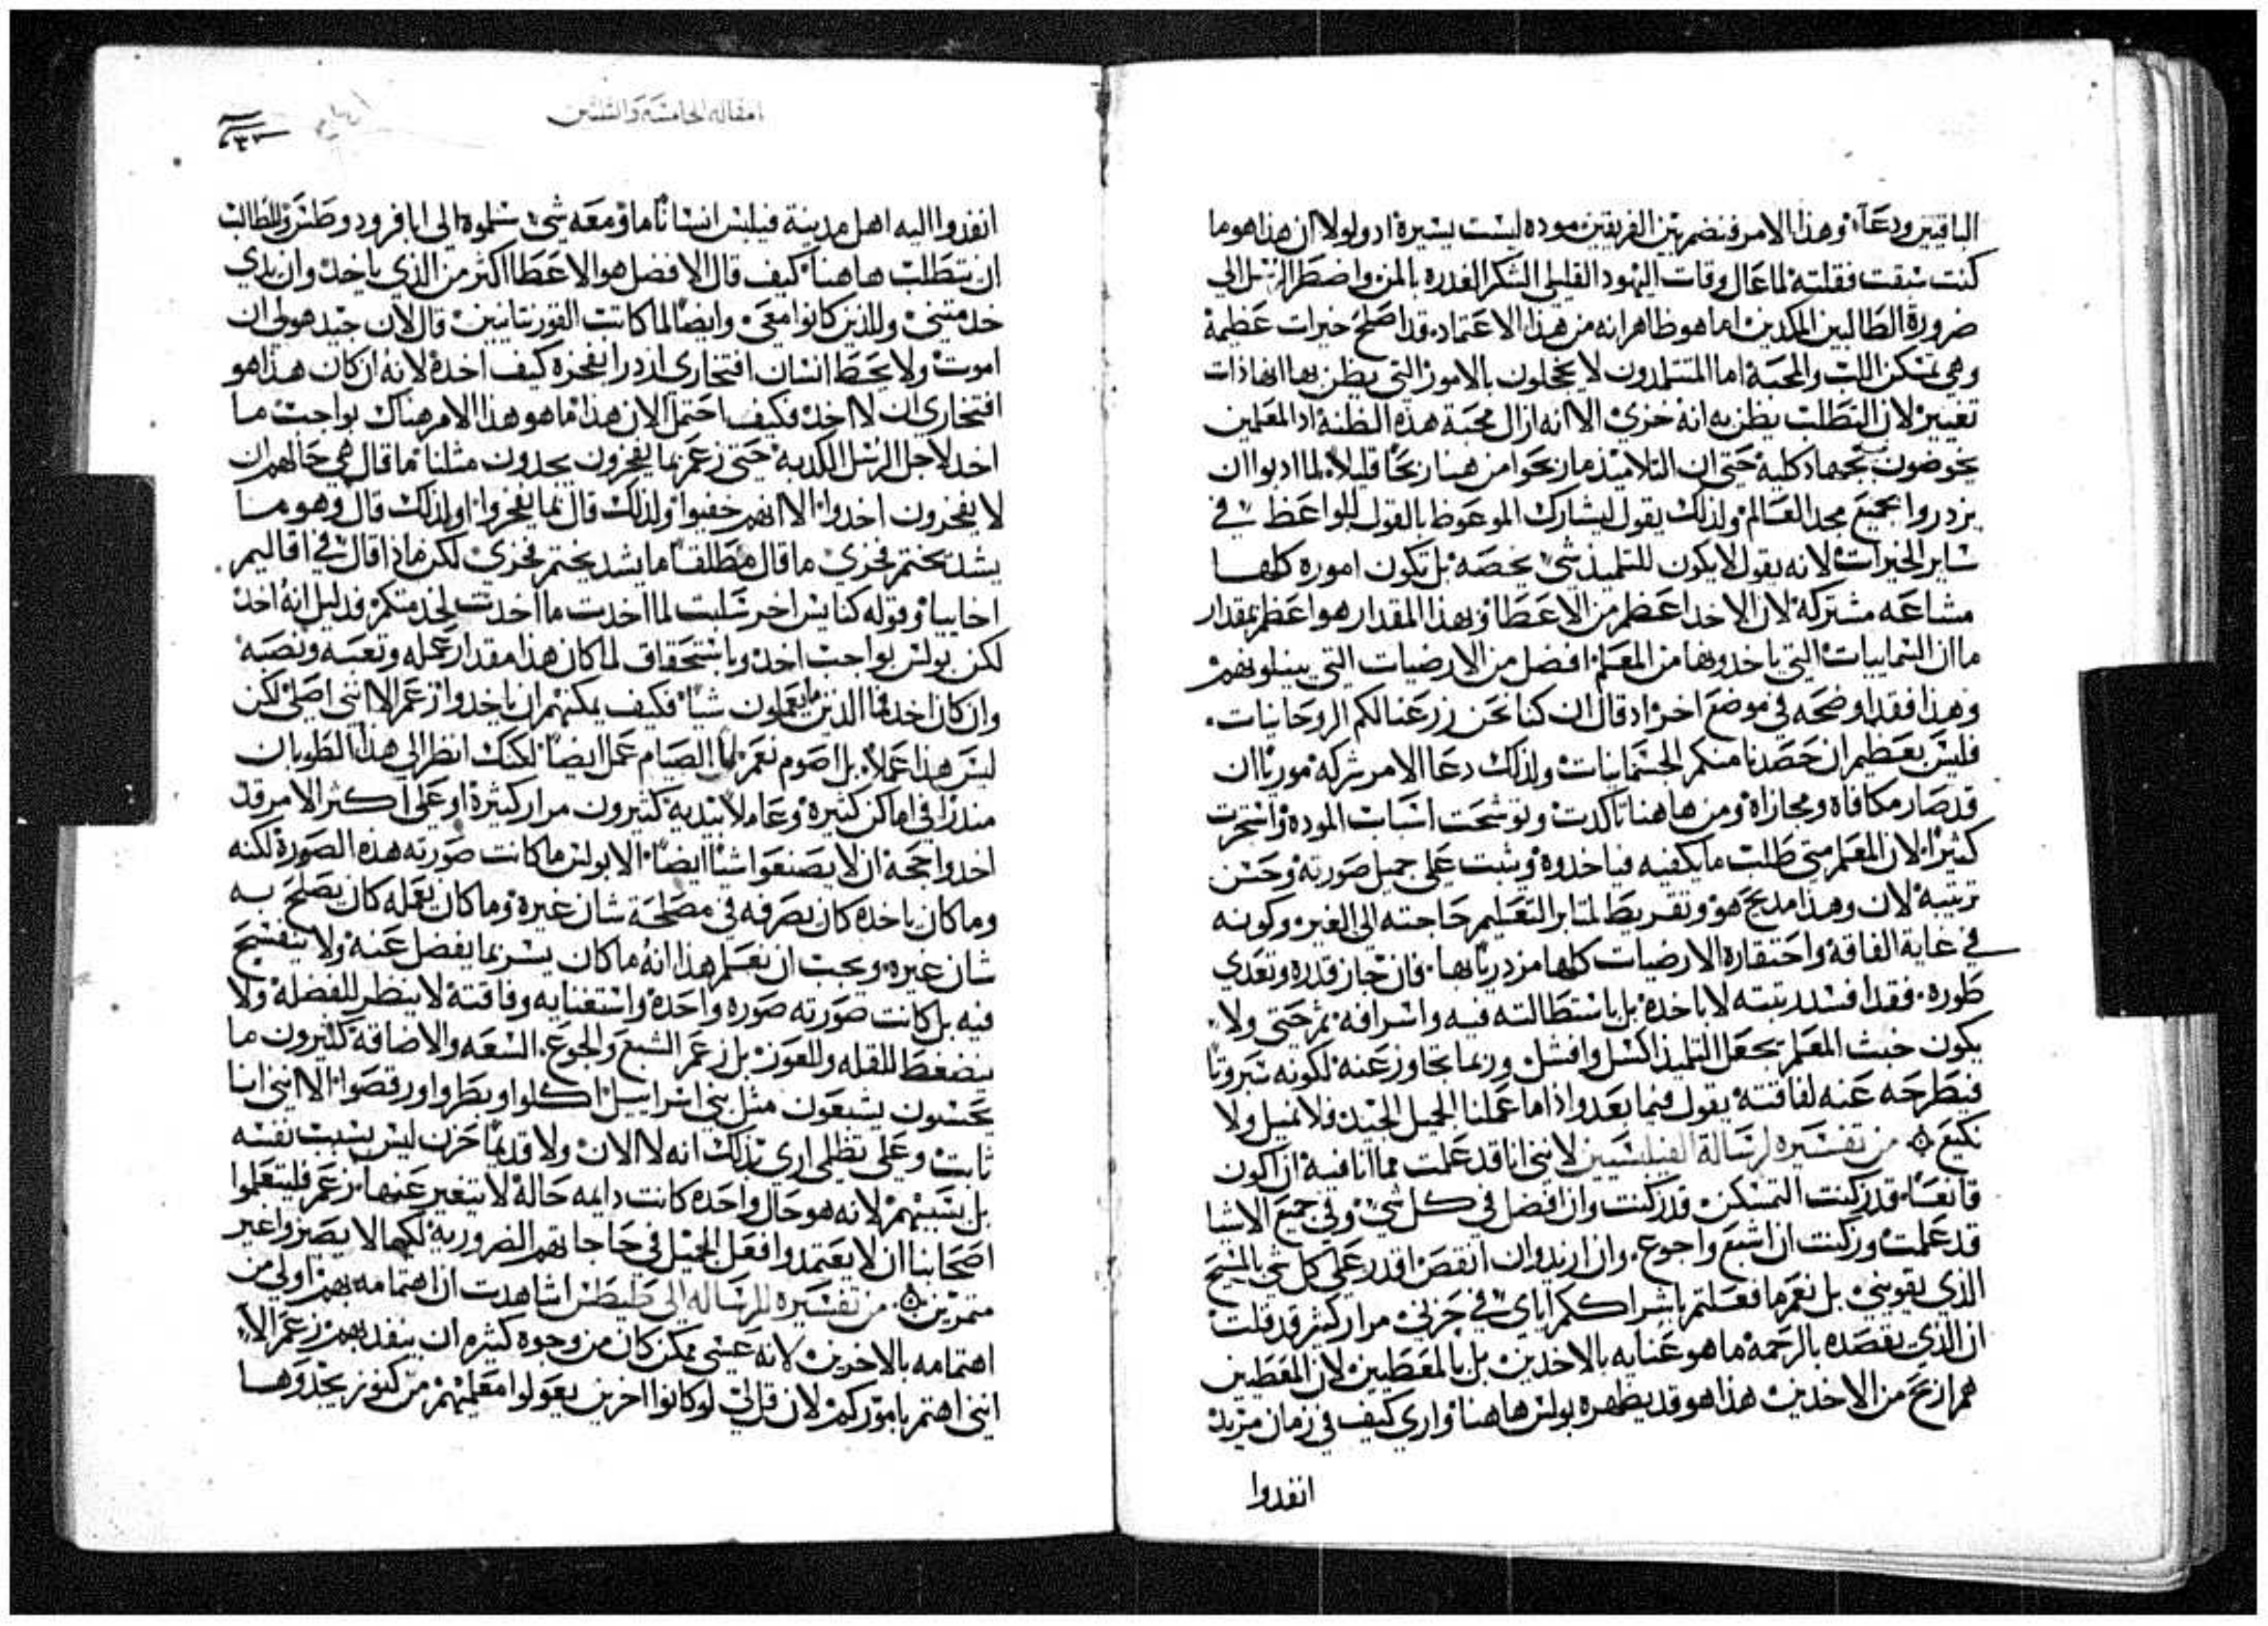 الباقيين ودعاه وهذا الامر فنضم بين الفريقين موده ليست يسيرة اد ولولا ان هذا هو ما
كنت سبقت فقلته لما عال وقات اليهود القليلي الشكر الغدره بالمن واضطر الرسل الي
ضرورة الطالبين المكدين اما هو ظاهر انه من هذا الاعتماد قد اصلح خيرات عظيمة
وهي تمتكن الات والمحبة اما المتتلمدون لا يخجلون بالامور التي يظن بها انها ذات
تعيير لان التطلب يظن به انه خزي الا انه ازال محبة هذه الظنة اد المعلمين
يخوضون بجهاد كليه حتي ان التلاميذ ما ربحوا من هنا ربحا قليلا لما ادبوا ان
يزدروا بجميع مجد العالم ولذلك يقول ليشارك الموعوظ بالقول للواعظ في
ساير الخيرات لانه يقول لا يكون للتلميذ شي يخصه بل تكون اموره كلها
مشاعه مشتركة لان الاخد اعظم من الاعطا وبهذا المقدار هو اعظم بمقدار
ما ان السماييات التي ياخدونها من المعلم افضل من الارضيات التي يبيلونهم
وهذا فقد اوضحه في موضع اخر اد قال ان كنا نحن زرعنا لكم الروحانيات
فليس بعظيم ان حصدنا منكم الجسمانيات ولذلك دعا الامر شركه موريا ان
قد صار مكافاه ومجازاة ومن هاهنا تاكدت وتوشحت اسباب الموده واستحرت
كثيرا لان المعلم متي طلب ما يكفيه فياخدوه ويثبت علي جميل صورته وحسن
ترتيبه لان وهذا مديح هو وتقريظ لمثابر التعليم حاجته الي الغير وكونه
في غاية الفاقة واحتقاره الارضيات كلها مزدريا بها فان جاز قدره وتعدي
طوره فقد افسد رتبته لا باخده بل باستطالته فيه واسرافه ثم حتي ولا
يكون خبث المعلم يجعل التلميذ اكسل وافشل وربما تجاوز عنه لكونه سبروتا
فيطرحه عنه لفاقته يقول فيما بعد واذا ما عملنا الجميل الجيد فلا نميل ولا
نكيع من تفسيره لرسالة الفيلبسيين لانني انا قد علمت مما انا فيه ان اكون
قانعا قد زكنت التمسكن قد زكنت وان افضل في كل شي وفي جميع الاشيا
قد علمت وزكنت ان اشبع واجوع وان ازيد وان انقص اقدر علي كل شي بالمسيح
الذي يقويني بل نعم ما فعلتم باشراككم اياي في حزني مرار كثير قد قلت
ان الذي يقصده بالرحمة ما هو عنايه بالاخدين بل بالمعطيين لان المعطيين
هم اربح من الاخدين هذا هو قد يظهره بولس هاهنا واري كيف في زمان مزيد
انفدوا
المقاله الخامسة والثلثين
انفدوا اليه اهل مدينة فيلبس انسانا ما ومعه شي سلموه الي ابافرودوطس والمطالب
ان يتطلب هاهنا كيف قال الافضل هو الاعطا اكثر من الذي ياخد وان يدي
خدمتني وللذين كانوا معي وايضا لما كاتب القورنتانيين قال لان جيد هو لي ان
اموت ولا يحط انسان افتخاري ازدرا بفخره كيف اخده لانه ان كان هذا هو
افتخاري ان لا اخد فكيف احتمل الان هذا ما هو هذا الامر هناك بواجب ما
اخد لاجل الرسل الكدبة حتي زعم بما يفخرون يجدون مثلنا ما قال هي حالهم ان
لا يفخرون اخدوا الا انهم خفيوا ولذلك قال بما يفخروا اولذلك قال وهو ما
يشد يختم فخري ما قال مطلقا ما يشد يختم فخري لكن ماذا قال في اقاليم
اخاييا وقوله كنايس اخر سلبت لما اخدت ما اخدت لخدمتكم فدليل انه اخد
لكن بولس بواجب اخد وباستحقاق لما كان هذا مقدار عمله وتعبه ونصبه
وان كان اخد فالذين ما يعملون شيا فكيف يمكنهم ان ياخدوا زعم الا انني اصلي لكن
ليس هذا عملا بل اصوم نعم لما الصيام عمل ايضا لكنك انظر الي هذا الطوبان
منذرا في اماكن كثيره وعاملا بيديه كثيرون مرار كثيرة او علي اكثر الامر قد
اخدوا حجة ان لا يصنعوا شيا ايضا الا بولس ما كانت صورته هذه الصورة لكنه
وما كان ياخده كان يصرفه في مصلحة شان غيره وما كان يعمله كان يصلح به
شان غيره ويجب ان نعلم هذا انه ما كان يسر بما يفضل عنه ولا يتفسح
فيه بل كانت صورته صوره واحدة واستغنايه وفاقته لا ينظر للفضلة ولا
ينضغط للقله وللعوز بل زعم الشبع والجوع السعه والاضاقة كثيرون ما
يحسنون يشبعون مثل بني اسراييل اكلوا وبطروا ورقصوا الا انني انا
ثابت وعلي نظلي اري بذلك انه لا الان ولا قديما حزن ليس بسبب نفسه
بل بسببهم لانه هو حال واحده كانت دايمه حالة لا يتغير عنها زعم فليتعلموا
اصحابنا ان لا يعتمدوا فعل الجميل في حاجاتهم الضرورية لكيما لا يصيروا غير
متمرين من تفسيره للرسالة الي طيطس اشاهدت ان اهتمامه بهم اولي من
اهتمامه بالاخرين لانه عسي ممكن كان من وجوه كثيره ان ينفد بهم زعم الا
انني اهتم باموركم لان قل لي لو كانوا اخرين يعولوا معلميهم من كنوز يجدوها